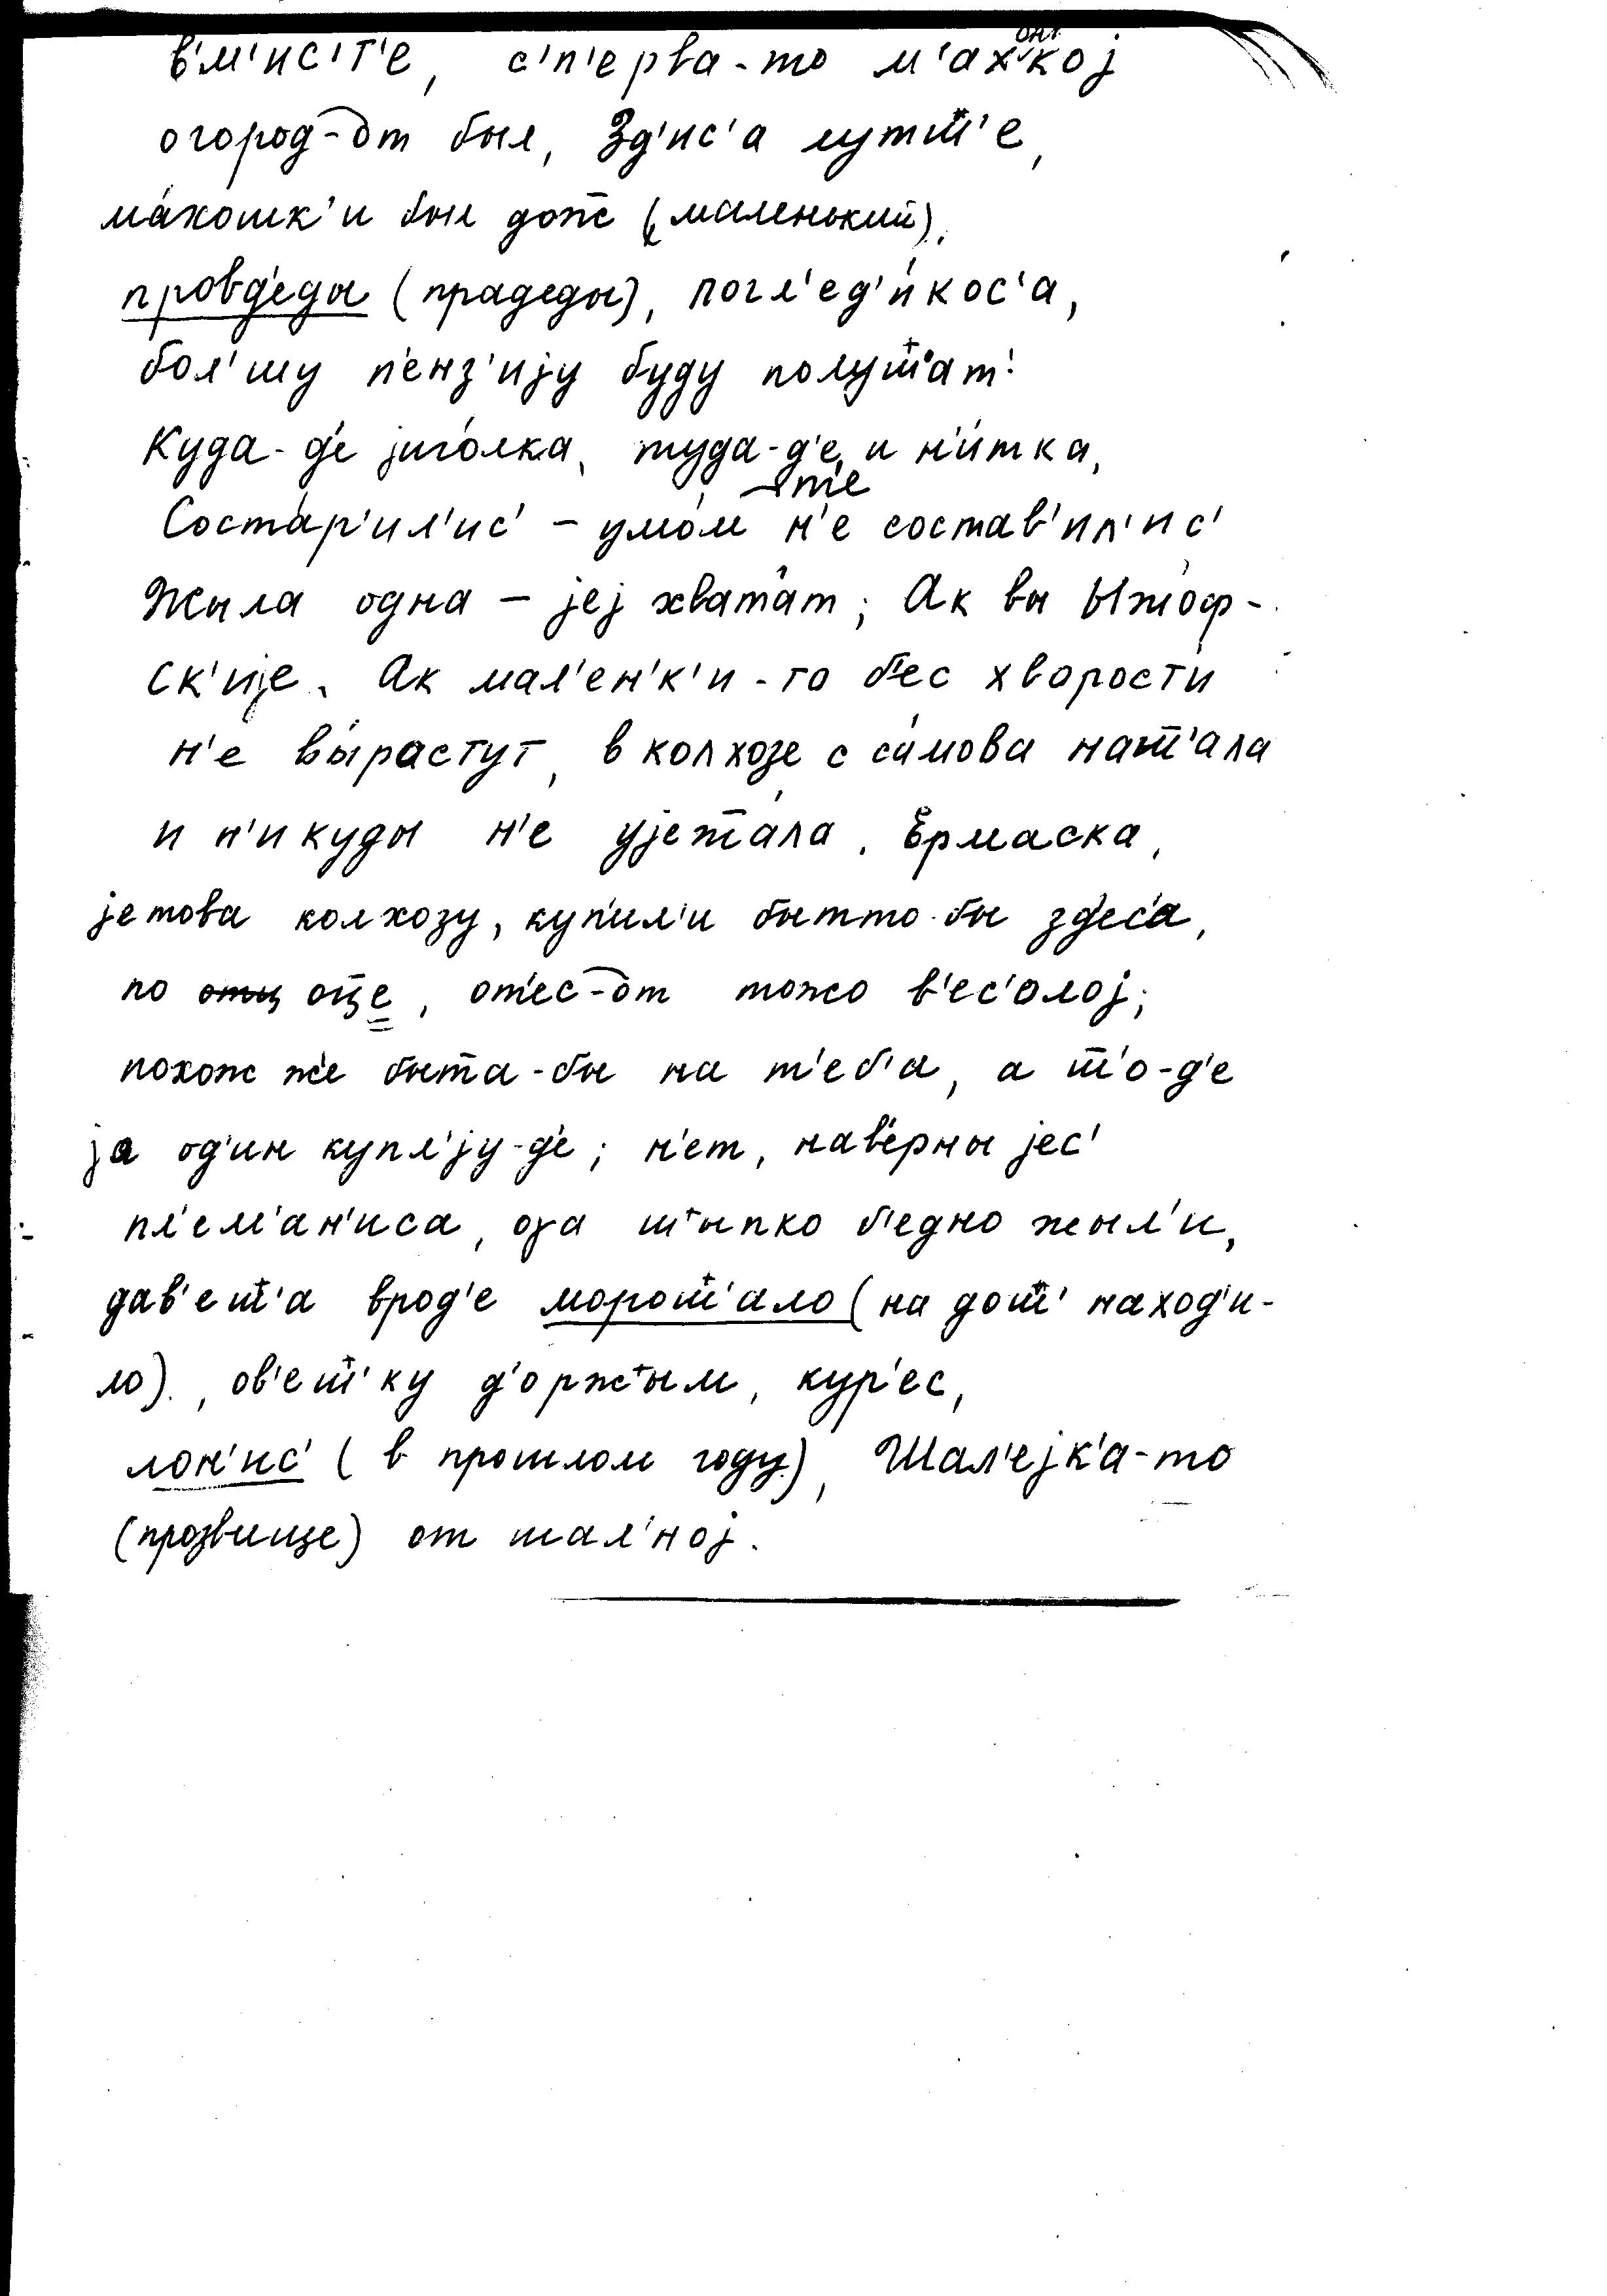 в'м'ис'т'е, с'п'ерва-то м'ахкој
огород-от был, Зд'ис'а лутш'е,
ма́хошк'и был дош (маленький),
провд'еды (прадеды), погл'ед'и́кос'а,
бол'шу п'енз'ију буду полуш'ат'
Куда-д'е јиго́лка, туда-д'е и н'и́тка,
Соста́р'ил'ис' – умо́м н'е состав'ил'ис'
Жыла одна – јеј хвата́т; Ак вы
ск'ије. Ак мал'ен'к'и-то б'ес хворости
н'е вы́растут, в колхозе с са́мова наш'ала
и н'икуды н'е ујежа́ла. Ёрмаска,
јетова колхозу, куп'ил'и бытто-бы зд'ес'а,
по оце, от'ес-от тожо в'ес'олој;
похож же быта-бы на т'еб'а, а ш'о-д'е
ја од'ин купл'ју-д'е; н'ет, нав'ерны јес'
пл'ем'ан'иса, оја шыпко б'едно жыл'и,
дав'еш'а врод'е морош'ало (на дош' наход'и-
ло)., ов'еш'ку д'оржым, кур'ес,
лон'ис' (в прошлом году), Шал'ејк'а-то
(прозвище) от шал'ној.